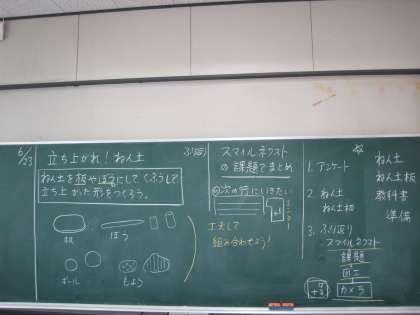 5/23
立ち上がれ！ねん土
ねん土を板やぼうにしてくふうして
立ち上がった形をつくろう。
板
ぼう
ボール
もよう
工夫して
組み合わせよう！
スマイルネクスト
の課題でまとめ
次の行にいきたい
エンター
1. アンケート
2. ねん土
ねん土板
3. ふり返り
スマイルネクスト
課題
カメラ
ねん土
ねん土板
教科書
準備